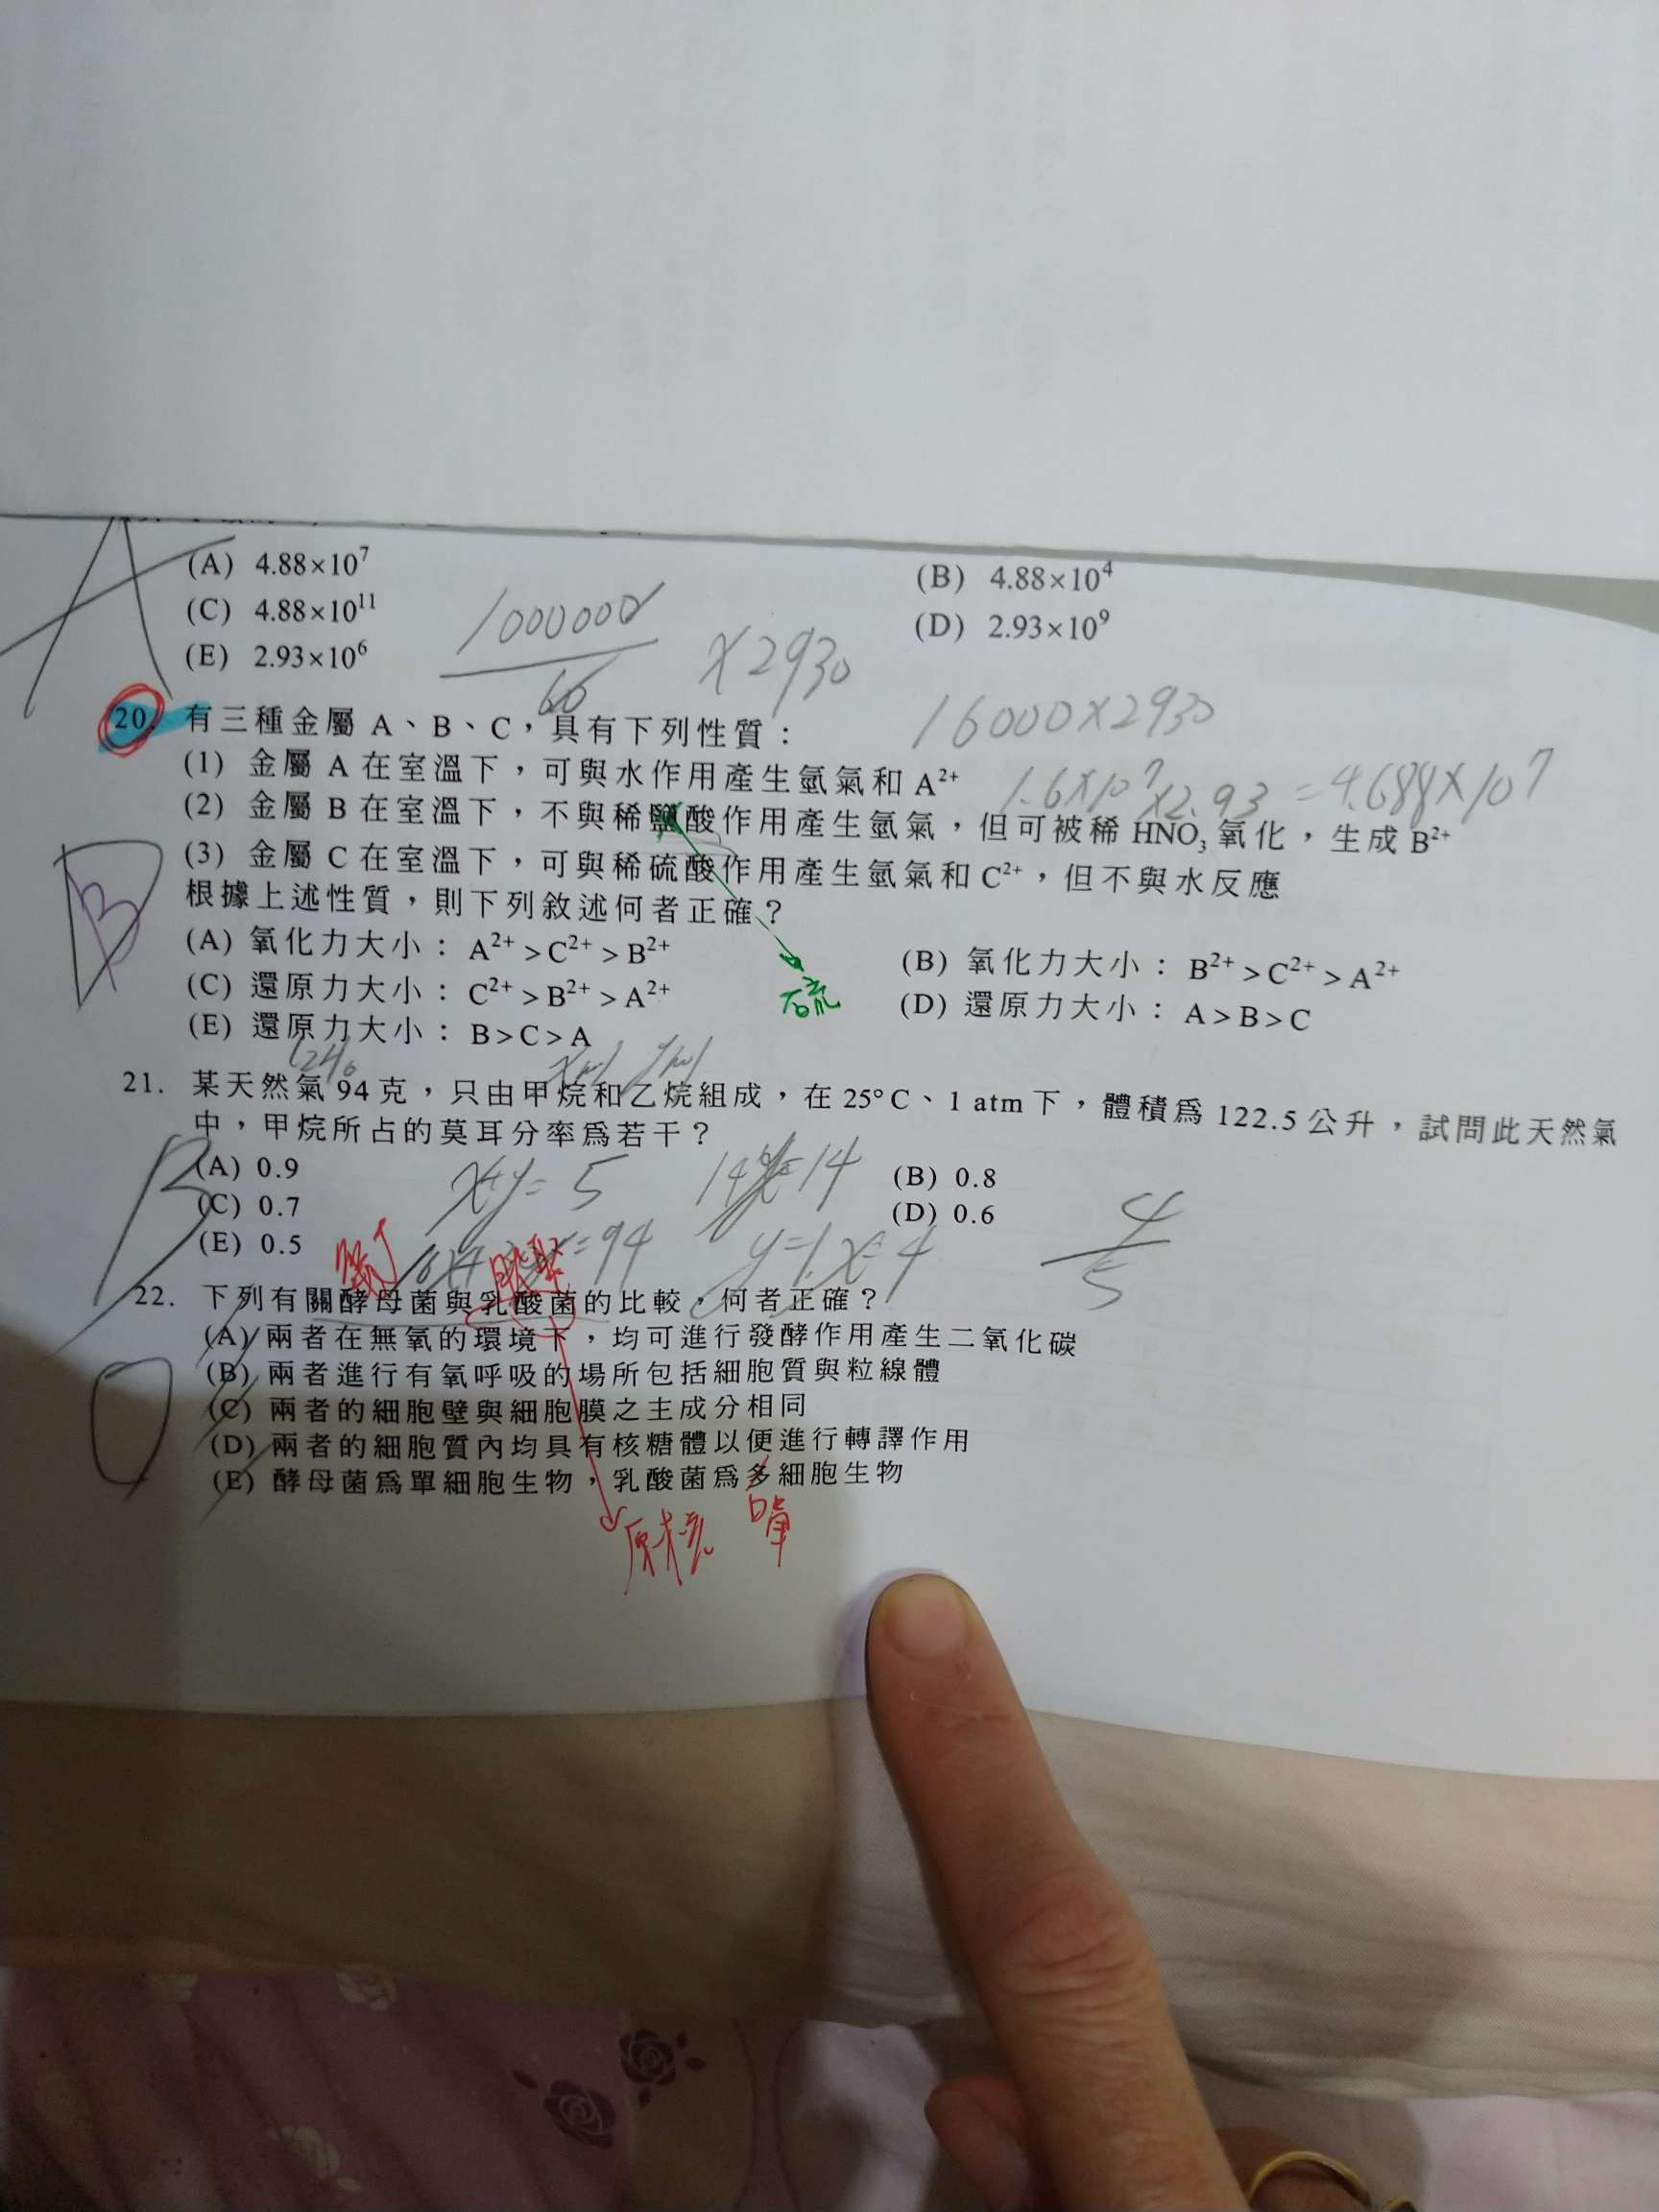 A
(A) 4.88×10⁷
(B) 4.88×10⁴
(C) 4.88×10¹¹
(D) 2.93×10⁹
(E) 2.93×10⁶
1000000
60
×2930
16000×2930
1.6×10⁷×2.93=4.688×10⁷
20. 有三種金屬 A、B、C，具有下列性質：
(1) 金屬 A 在室溫下，可與水作用產生氫氣和 A²⁺
(2) 金屬 B 在室溫下，不與稀鹽酸作用產生氫氣，但可被稀 HNO₃ 氧化，生成 B²⁺
(3) 金屬 C 在室溫下，可與稀硫酸作用產生氫氣和 C²⁺，但不與水反應
根據上述性質，則下列敘述何者正確？
(A) 氧化力大小：A²⁺>C²⁺>B²⁺
(B) 氧化力大小：B²⁺>C²⁺>A²⁺
(C) 還原力大小：C²⁺>B²⁺>A²⁺
(D) 還原力大小：A>B>C
(E) 還原力大小：B>C>A
硫
B
21. 某天然氣 94 克，只由甲烷和乙烷組成，在 25°C、1 atm 下，體積為 122.5 公升，試問此天然氣
中，甲烷所占的莫耳分率為若干？
(A) 0.9
(B) 0.8
(C) 0.7
(D) 0.6
(E) 0.5
B
x+y=5
=94
y=1 x=4
4
5
22. 下列有關酵母菌與乳酸菌的比較，何者正確？
(A) 兩者在無氧的環境下，均可進行發酵作用產生二氧化碳
(B) 兩者進行有氧呼吸的場所包括細胞質與粒線體
(C) 兩者的細胞壁與細胞膜之主成分相同
(D) 兩者的細胞質內均具有核糖體以便進行轉譯作用
(E) 酵母菌為單細胞生物，乳酸菌為多細胞生物
原核
單